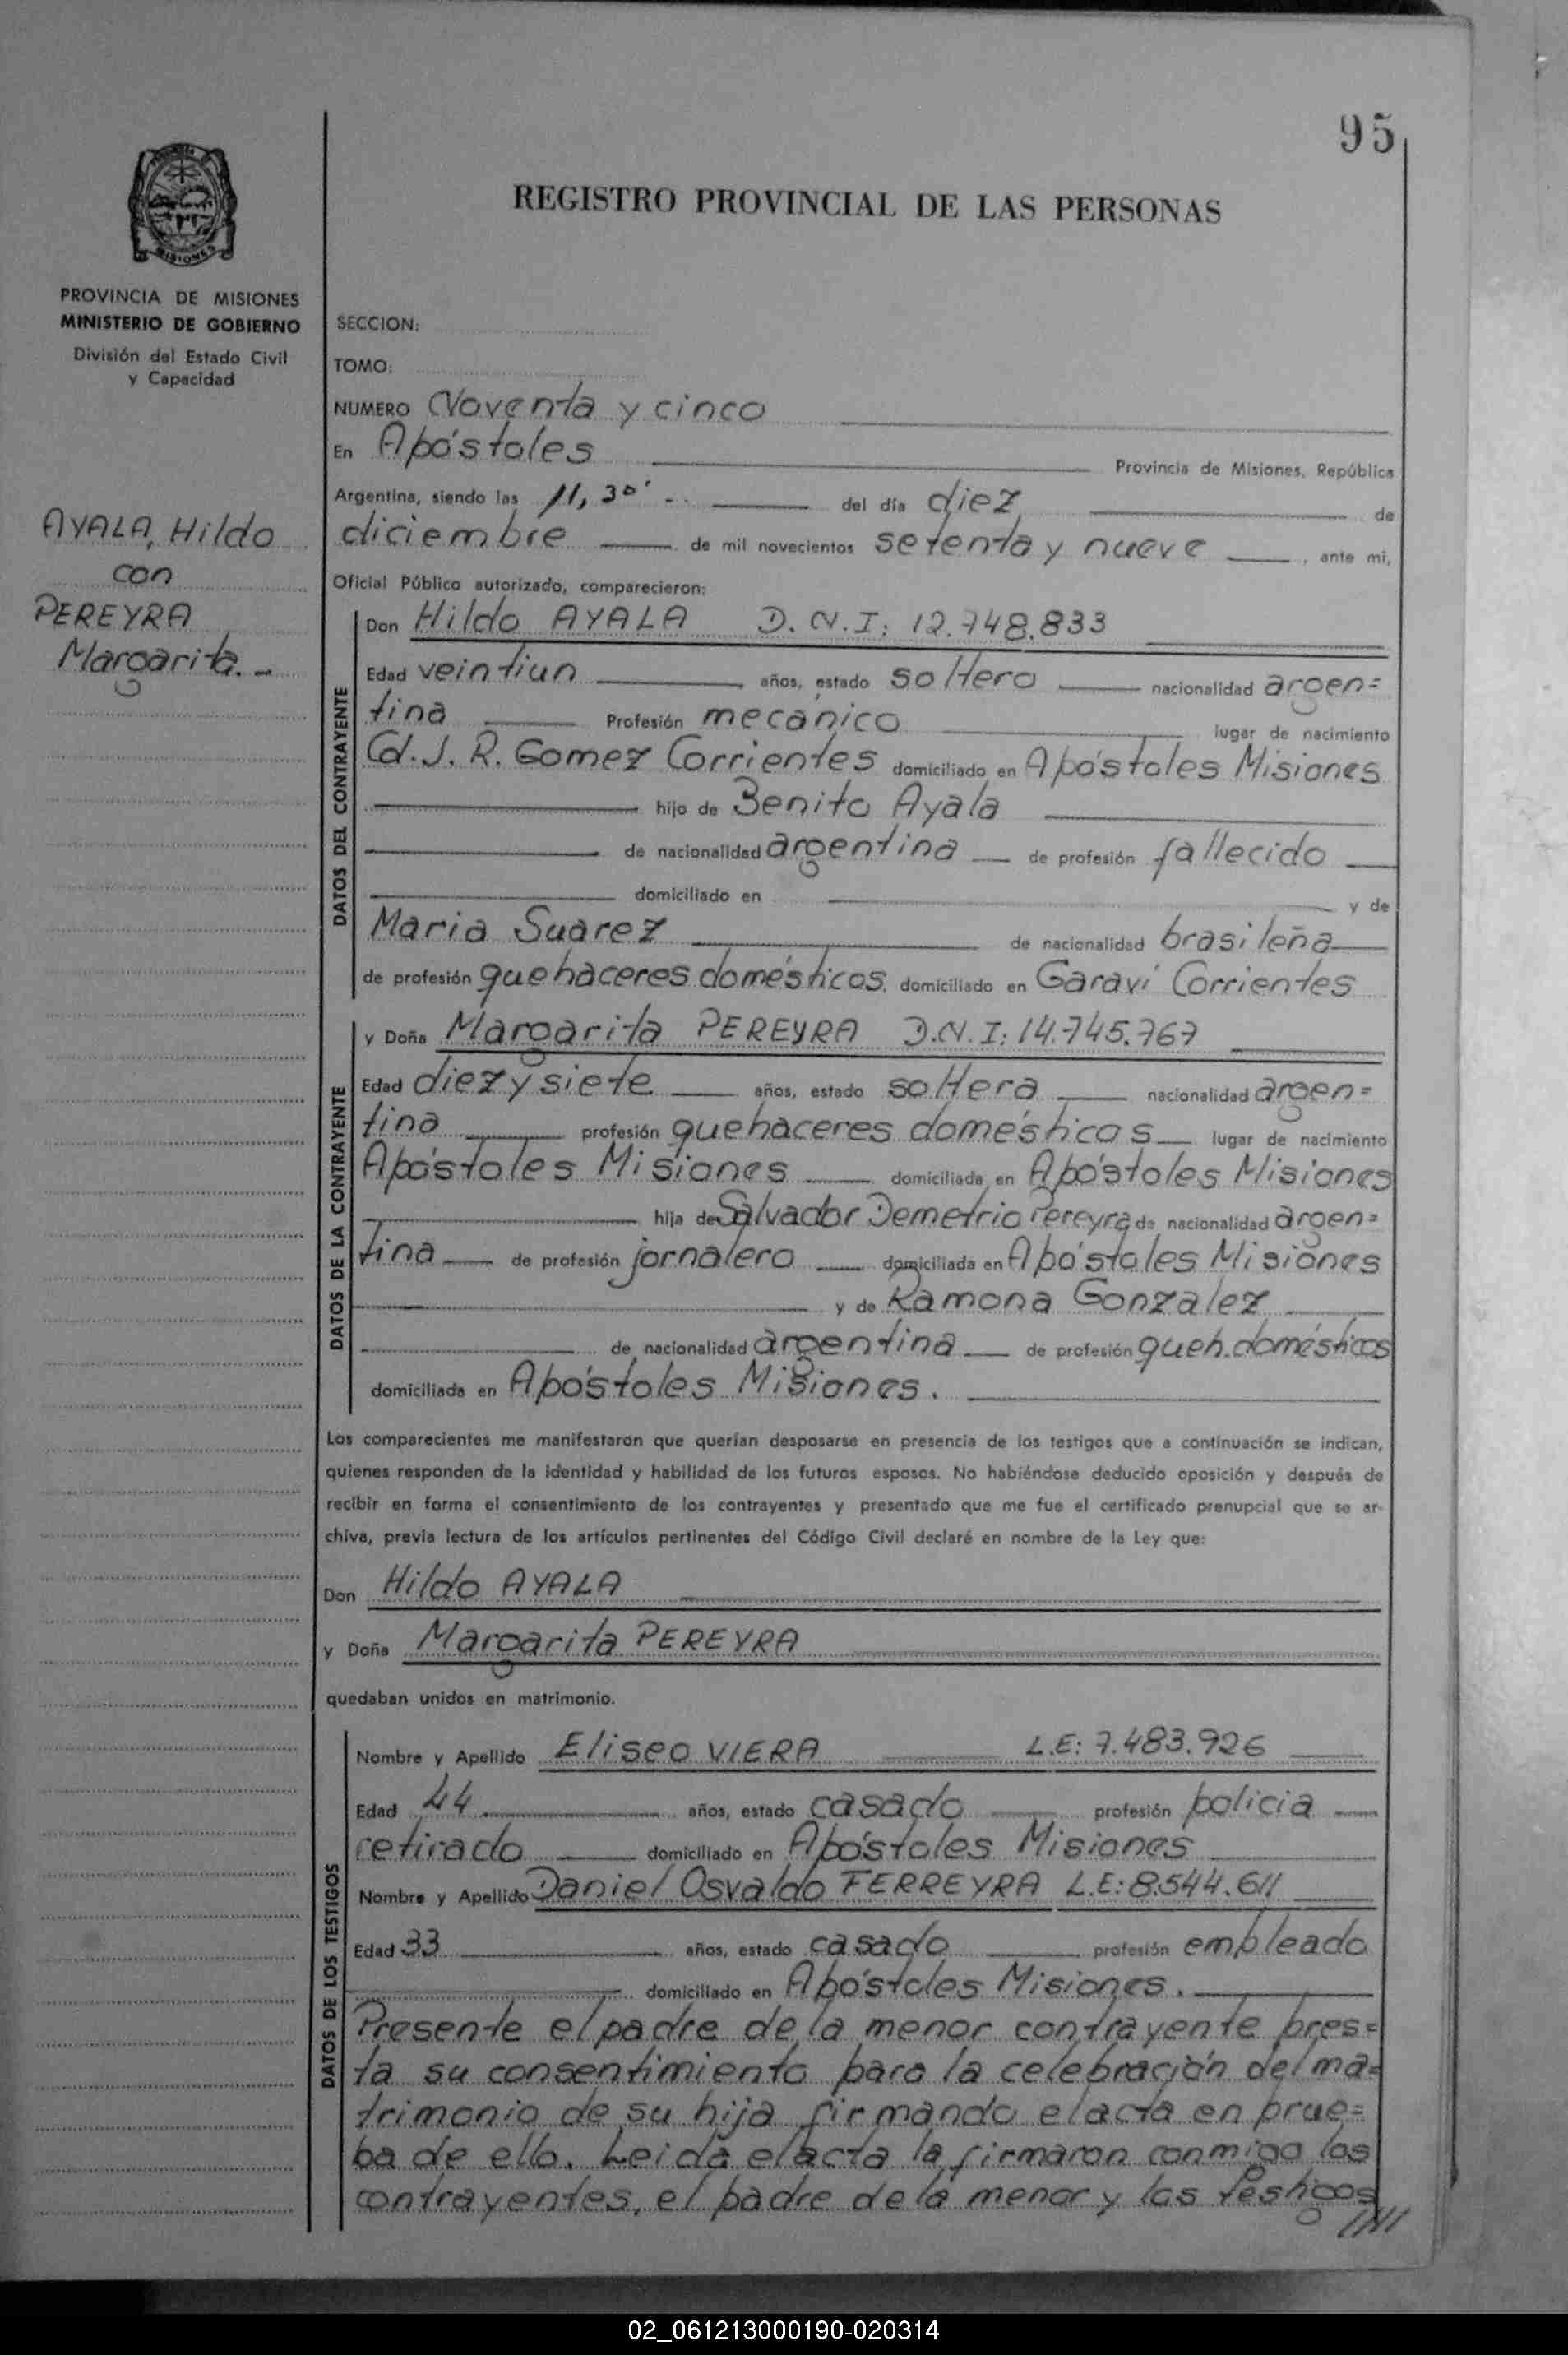 95
REGISTRO PROVINCIAL DE LAS PERSONAS
PROVINCIA DE MISIONES
MINISTERIO DE GOBIERNO
División del Estado Civil
y Capacidad
AYALA, Hildo
con
PEREYRA
Margarita. -
SECCION:
TOMO:
NUMERO Noventa y cinco
En Apóstoles Provincia de Misiones, República
Argentina, siendo las 11,30' - . del día diez de
diciembre de mil novecientos setenta y nueve , ante mi,
Oficial Público autorizado, comparecieron:
DATOS DEL CONTRAYENTE
Don Hildo AYALA D.N.I: 12.748.833
Edad veintiun años, estado soltero nacionalidad argen=
tina Profesión mecánico lugar de nacimiento
Cd. J. R. Gomez Corrientes domiciliado en Apóstoles Misiones
hijo de Benito Ayala
de nacionalidad argentina de profesión fallecido
domiciliado en y de
Maria Suarez de nacionalidad brasileña
de profesión quehaceres domésticos, domiciliado en Garaví Corrientes
DATOS DE LA CONTRAYENTE
y Doña Margarita PEREYRA D.N.I: 14.745.767
Edad diez y siete años, estado soltera nacionalidad argen=
tina profesión quehaceres domésticos lugar de nacimiento
Apóstoles Misiones domiciliada en Apóstoles Misiones
hija de Salvador Demetrio Pereyra de nacionalidad argen=
tina de profesión jornalero domiciliada en Apóstoles Misiones
y de Ramona Gonzalez
de nacionalidad argentina de profesión queh. domésticos
domiciliada en Apóstoles Misiones.
Los comparecientes me manifestaron que querían desposarse en presencia de los testigos que a continuación se indican,
quienes responden de la identidad y habilidad de los futuros esposos. No habiéndose deducido oposición y después de
recibir en forma el consentimiento de los contrayentes y presentado que me fue el certificado prenupcial que se ar-
chiva, previa lectura de los artículos pertinentes del Código Civil declaré en nombre de la Ley que:
Don Hildo AYALA
y Doña Margarita PEREYRA
quedaban unidos en matrimonio.
DATOS DE LOS TESTIGOS
Nombre y Apellido Eliseo VIERA L.E: 7.483.926
Edad 44 años, estado casado profesión policia
retirado domiciliado en Apóstoles Misiones
Nombre y Apellido Daniel Osvaldo FERREYRA L.E: 8.544.611
Edad 33 años, estado casado profesión empleado
domiciliado en Apóstoles Misiones.
Presente el padre de la menor contrayente pres=
ta su consentimiento para la celebración del ma=
trimonio de su hija firmando el acta en prue=
ba de ello. Leida el acta la firmaron conmigo los
contrayentes, el padre de la menor y los testigos
/////
02_061213000190-020314